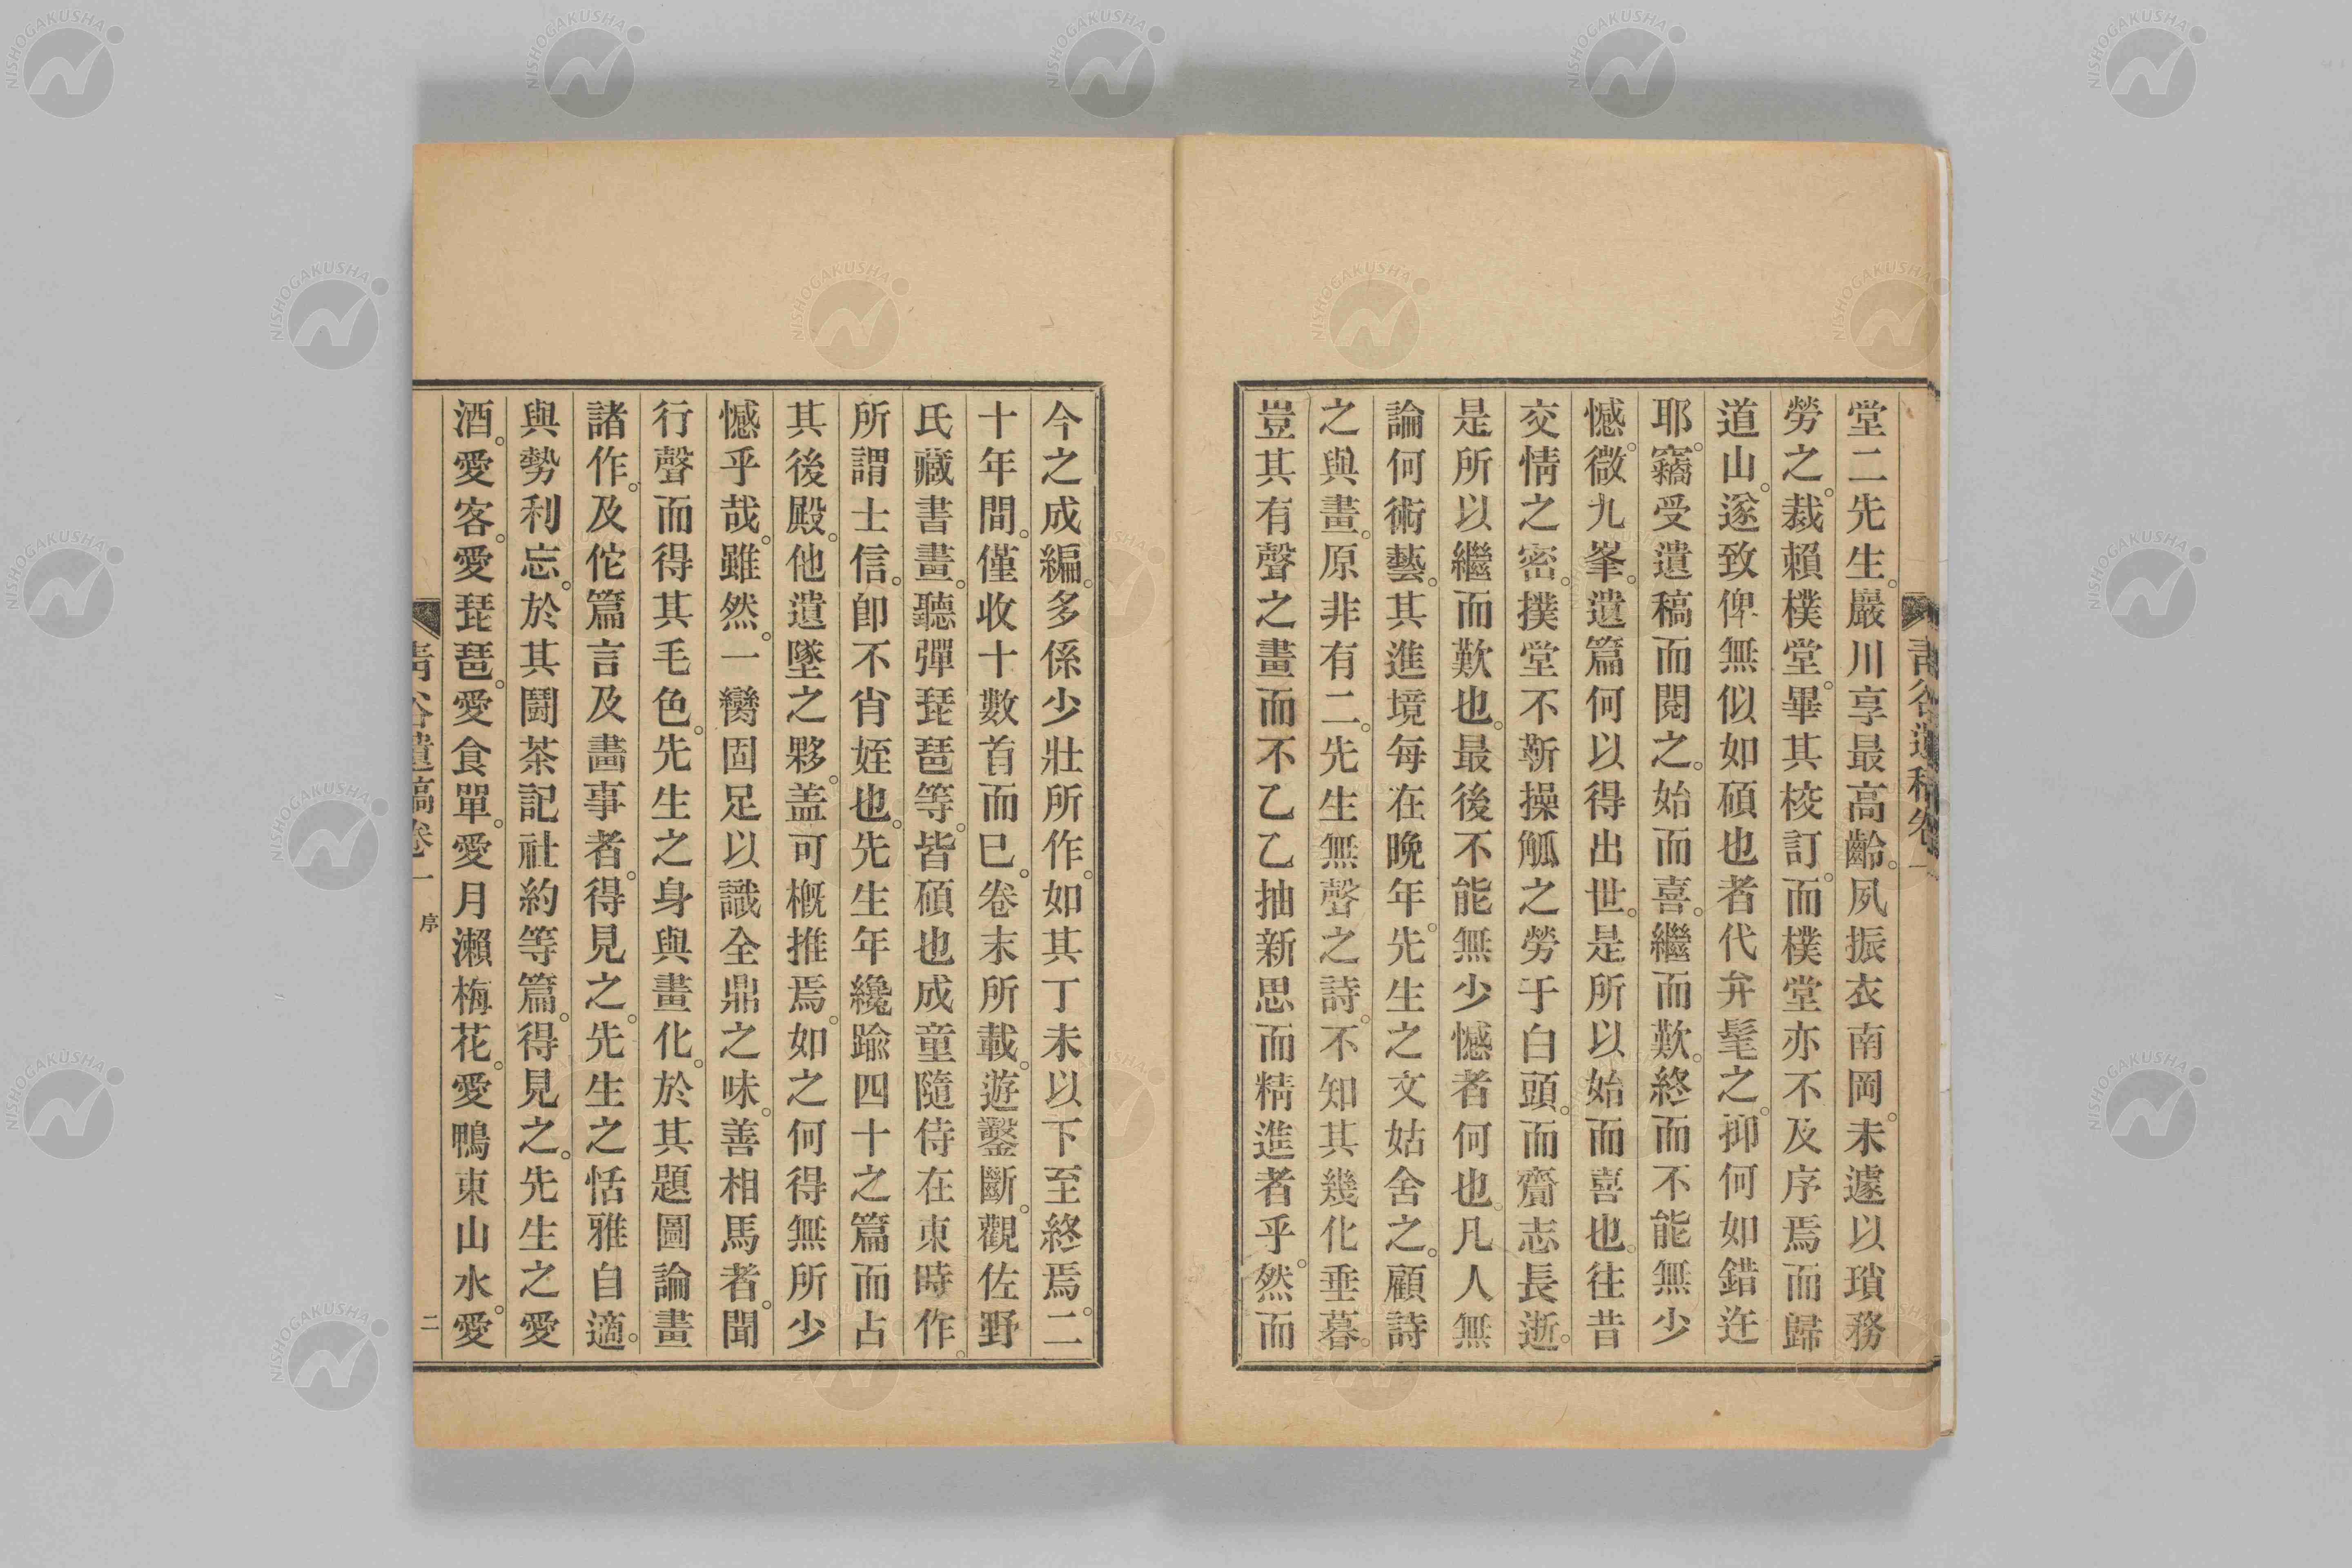 堂二先生。巖川享最高齡。夙振衣南岡。未遽以瑣務
勞之。裁賴樸堂。畢其校訂。而樸堂亦不及序焉而歸
道山。遂致俾無似如碩也者代弁髦之。抑何如錯迕
耶。竊受遺稿而閱之。始而喜。繼而歎。終而不能無少
憾。微九峯。遺篇何以得出世。是所以始而喜也。往昔
交情之密。撲堂不靳操觚之勞于白頭。而齎志長逝。
是所以繼而歎也。最後不能無少憾者何也。凡人無
論何術藝。其進境每在晚年。先生之文姑舍之。顧詩
之與畫。原非有二。先生無聲之詩。不知其幾化垂暮。
豈其有聲之畫而不乙乙抽新思而精進者乎。然而
今之成編。多係少壯所作。如其丁未以下至終焉。二
十年間。僅收十數首而已。卷末所載。遊鑿斷。觀佐野
氏藏書畫。聽彈琵琶等。皆碩也成童隨侍在東時作。
所謂士信。卽不肖姪也。先生年纔踰四十之篇而占
其後殿。他遺墜之夥。盖可概推焉。如之何得無所少
憾乎哉。雖然。一臠固足以識全鼎之味。善相馬者。聞
行聲而得其毛色。先生之身與畫化。於其題圖論畫
諸作。及佗篇言及畵事者。得見之。先生之恬雅自適。
與勢利忘。於其鬪茶記社約等篇。得見之。先生之愛
酒。愛客。愛琵琶。愛食單。愛月瀨梅花。愛鴨東山水。愛
青谷遺稿卷一 序 二
NISHOGAKUSHA